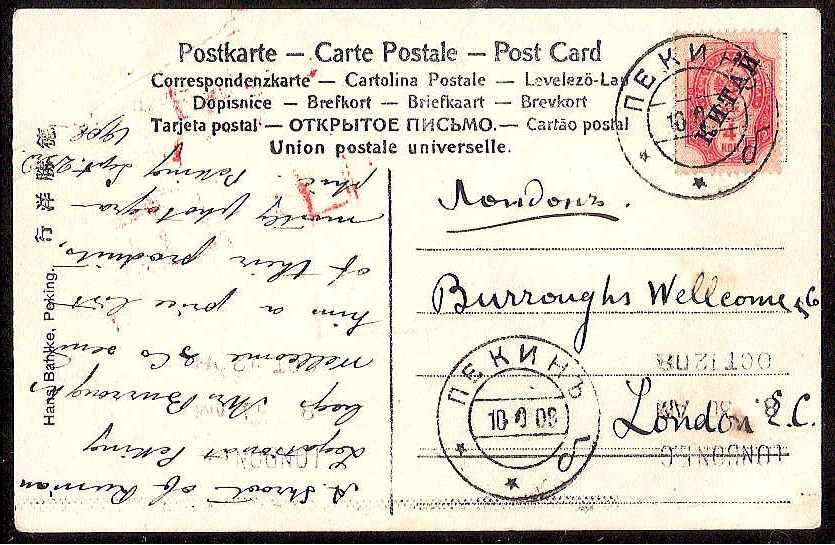 Postkarte — Carte Postale — Post Card
Correspondenzkarte — Cartolina Postale — Levelező-Lap
Dopisnice — Brefkort — Briefkaart — Brevkort
Tarjeta postal — ОТКРЫТОЕ ПИСЬМО. — Cartão postal
Union postale universelle.
ПЕКИНЪ
КИТАЙ
德勝洋行
Hans Bahlke, Peking.
of Russian
Legation at Peking
begs Mrs Burroughs
Wellcome & Co send
him a price list
of their products,
mostly photogra-
phic. Peking Sept.
1908
Лондонъ.
Burroughs Wellcome
London E.C.
ПЕКИНЪ
10 9 08
LONDON E.C.
30 AM
OCT 12 08